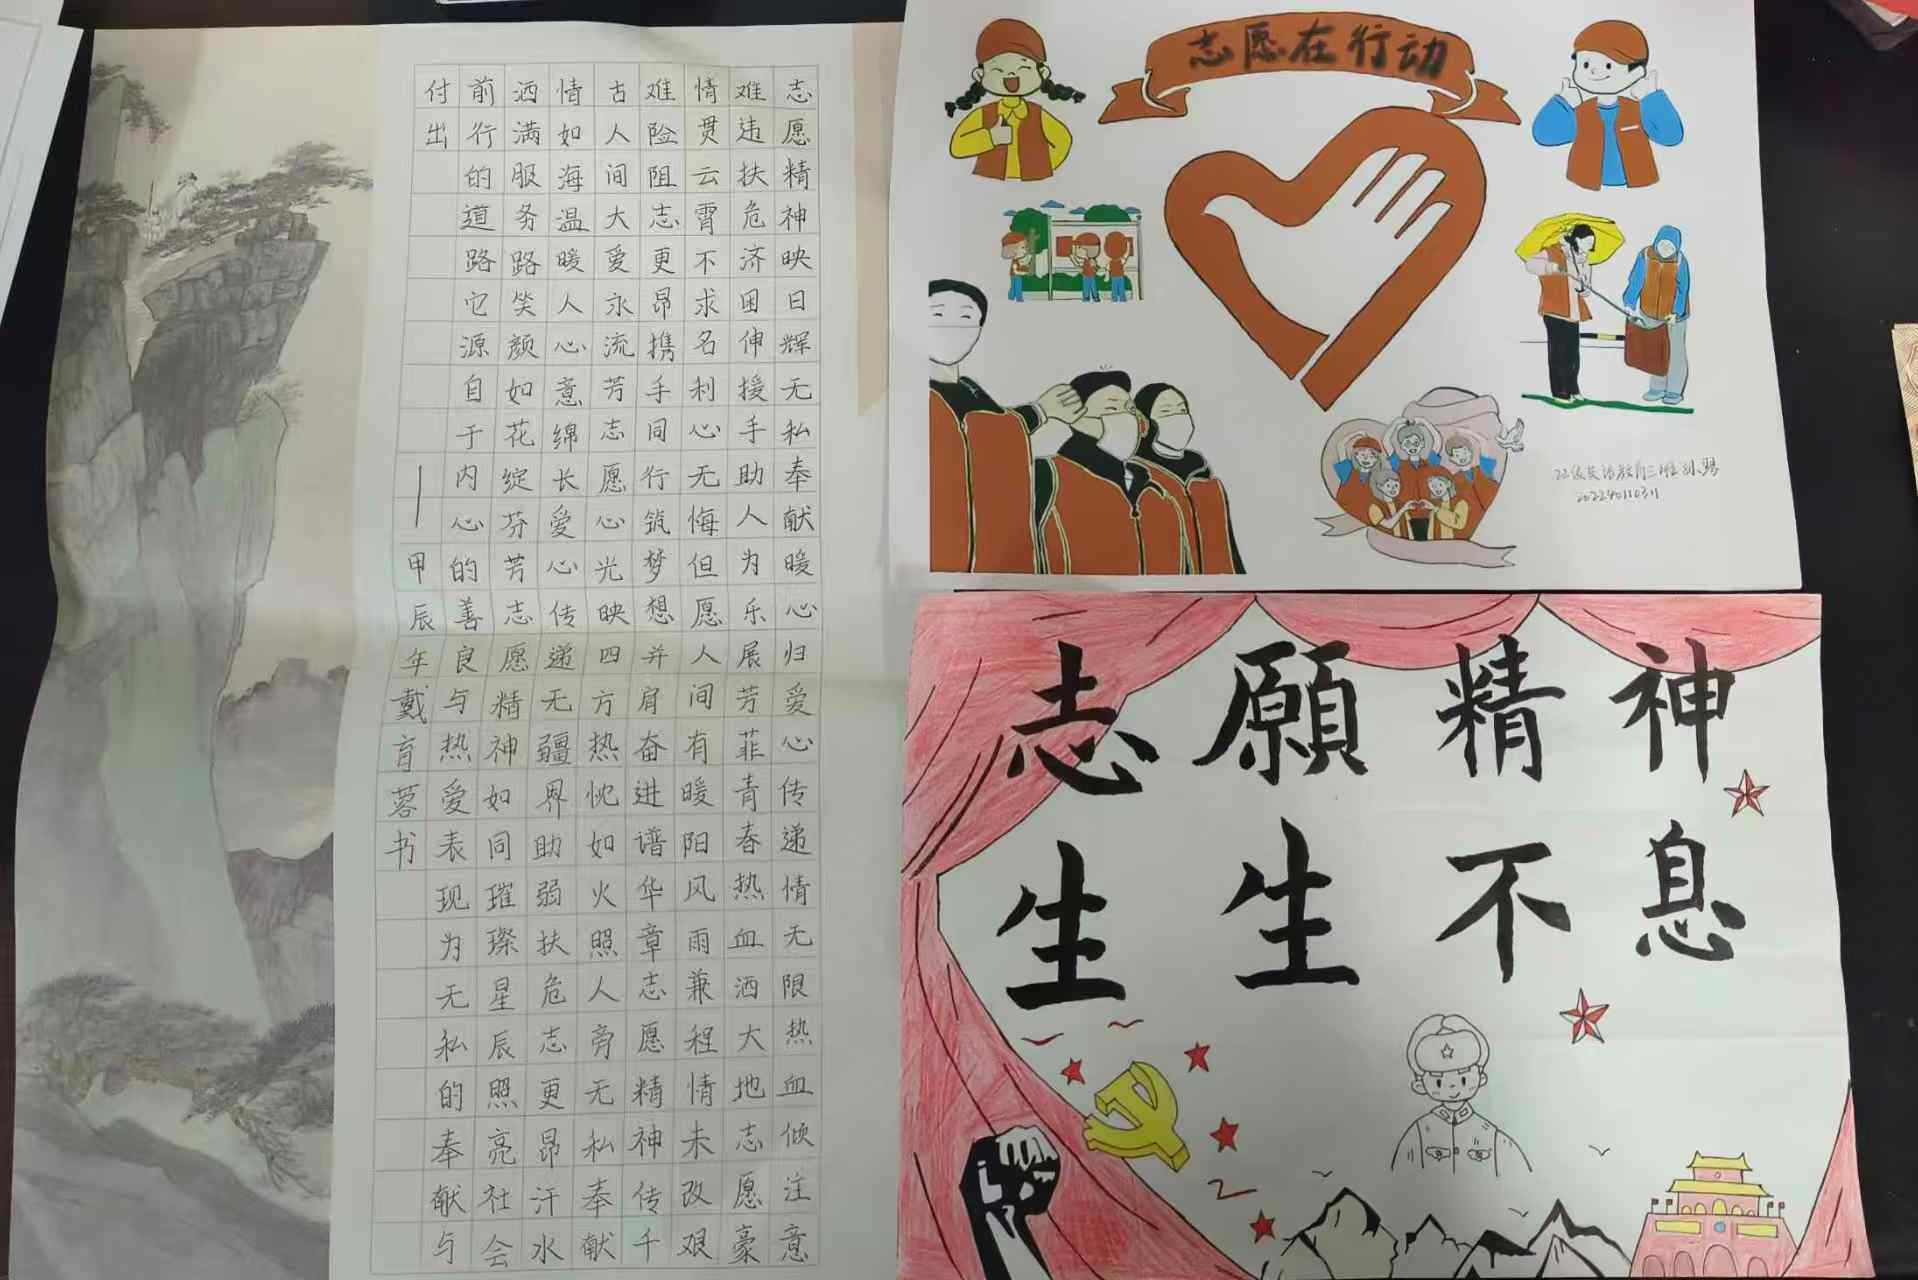 志愿精神映日辉无私奉献暖心归爱心传递情无限热血倾注意
难违扶危济困伸援手助人为乐展芳菲青春热血洒大地志愿豪
情贯云霄不求名利心无悔但愿人间有暖阳风雨兼程情未改艰
难险阻志更昂携手同行筑梦想并肩奋进谱华章志愿精神传千
古人间大爱永流芳志愿心光映四方热忱如火照人旁无私奉献
情如海温暖人心意绵长爱心传递无疆界助弱扶危志更昂汗水
洒满服务路笑颜如花绽芬芳志愿精神如同璀璨星辰照亮社会
前行的道路它源自于内心的善良与热爱表现为无私的奉献与
付出——甲辰年戴育蓉书
志愿在行动
22级英语教育三班
志願精神
生生不息